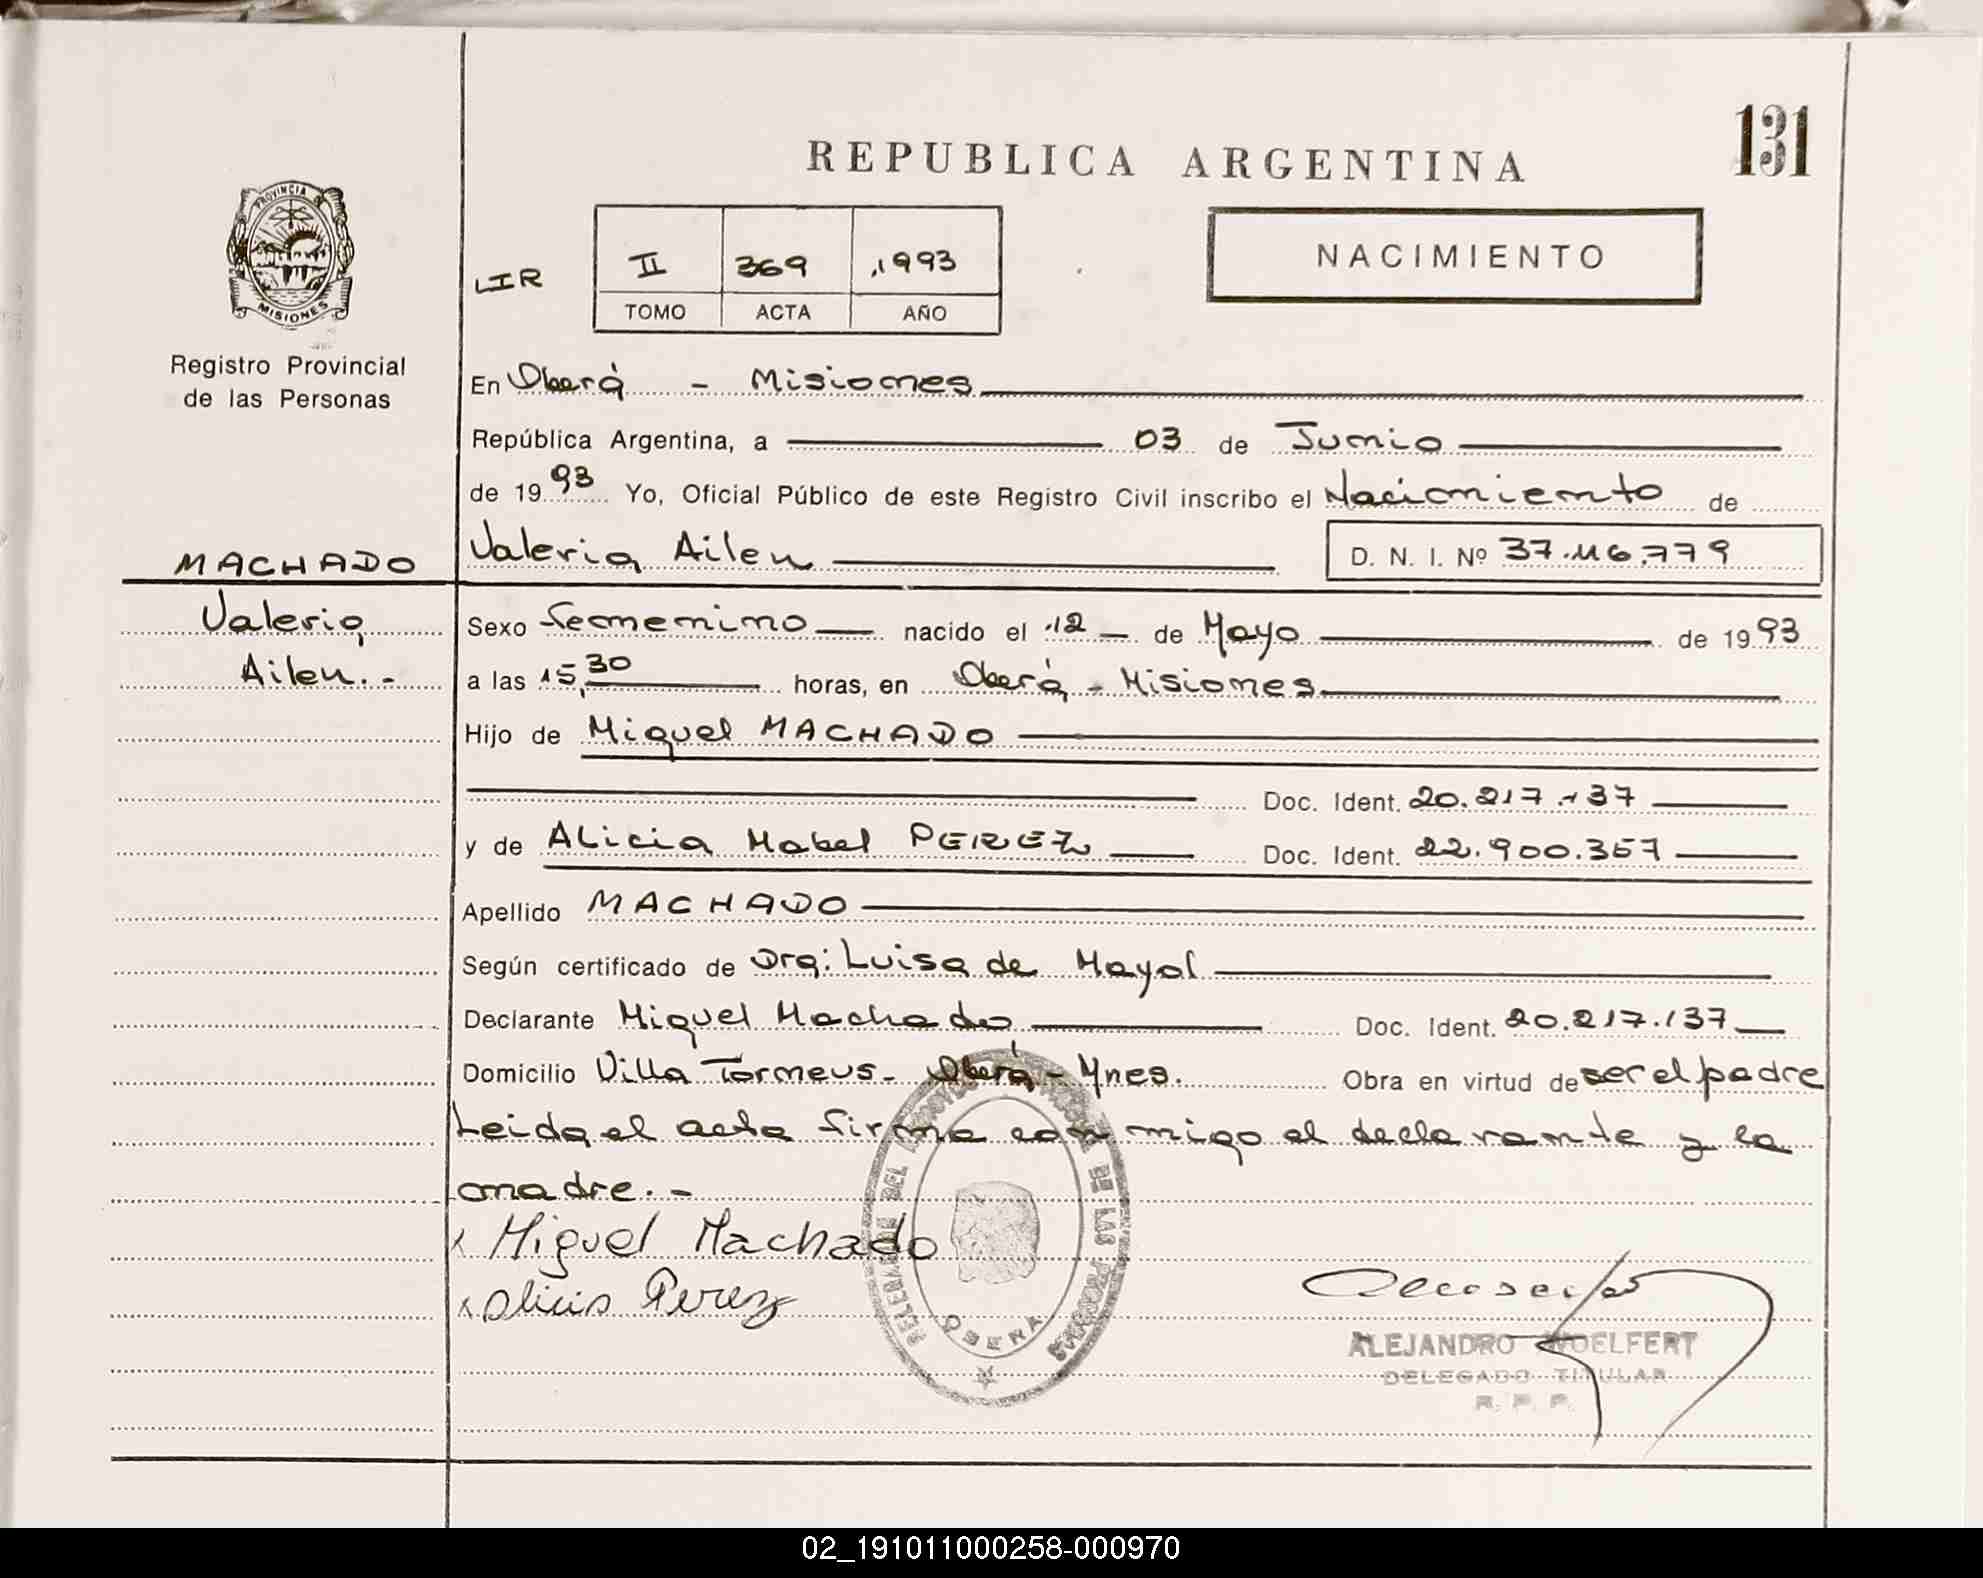 131
REPUBLICA ARGENTINA
PROVINCIA DE
MISIONES
Registro Provincial
de las Personas
NACIMIENTO
LIR
II 369 1993
TOMO ACTA AÑO
En Oberá - Misiones
República Argentina, a 03 de Junio
de 1993 Yo, Oficial Público de este Registro Civil inscribo el Nacimiento de
MACHADO
Valeria Ailen D. N. I. Nº 37.116.779
Valeria
Ailen.-
Sexo Femenino nacido el 12 de Mayo de 1993
a las 15,30 horas, en Oberá - Misiones
Hijo de Miguel MACHADO
Doc. Ident. 20.217.137
y de Alicia Mabel PEREZ Doc. Ident. 22.900.357
Apellido MACHADO
Según certificado de Dra: Luisa de Mayol
Declarante Miguel Machado Doc. Ident. 20.217.137
Domicilio Villa Torneus - Oberá - Mnes. Obra en virtud de ser el padre
Leida el acta firma con migo el declarante y la
madre.-
x Miguel Machado
x Alicia Perez
DELEGACION DEL REGISTRO PROVINCIAL DE LAS PERSONAS
OBERA
ALEJANDRO WOELFERT
DELEGADO TITULAR
R. P. P.
02_191011000258-000970